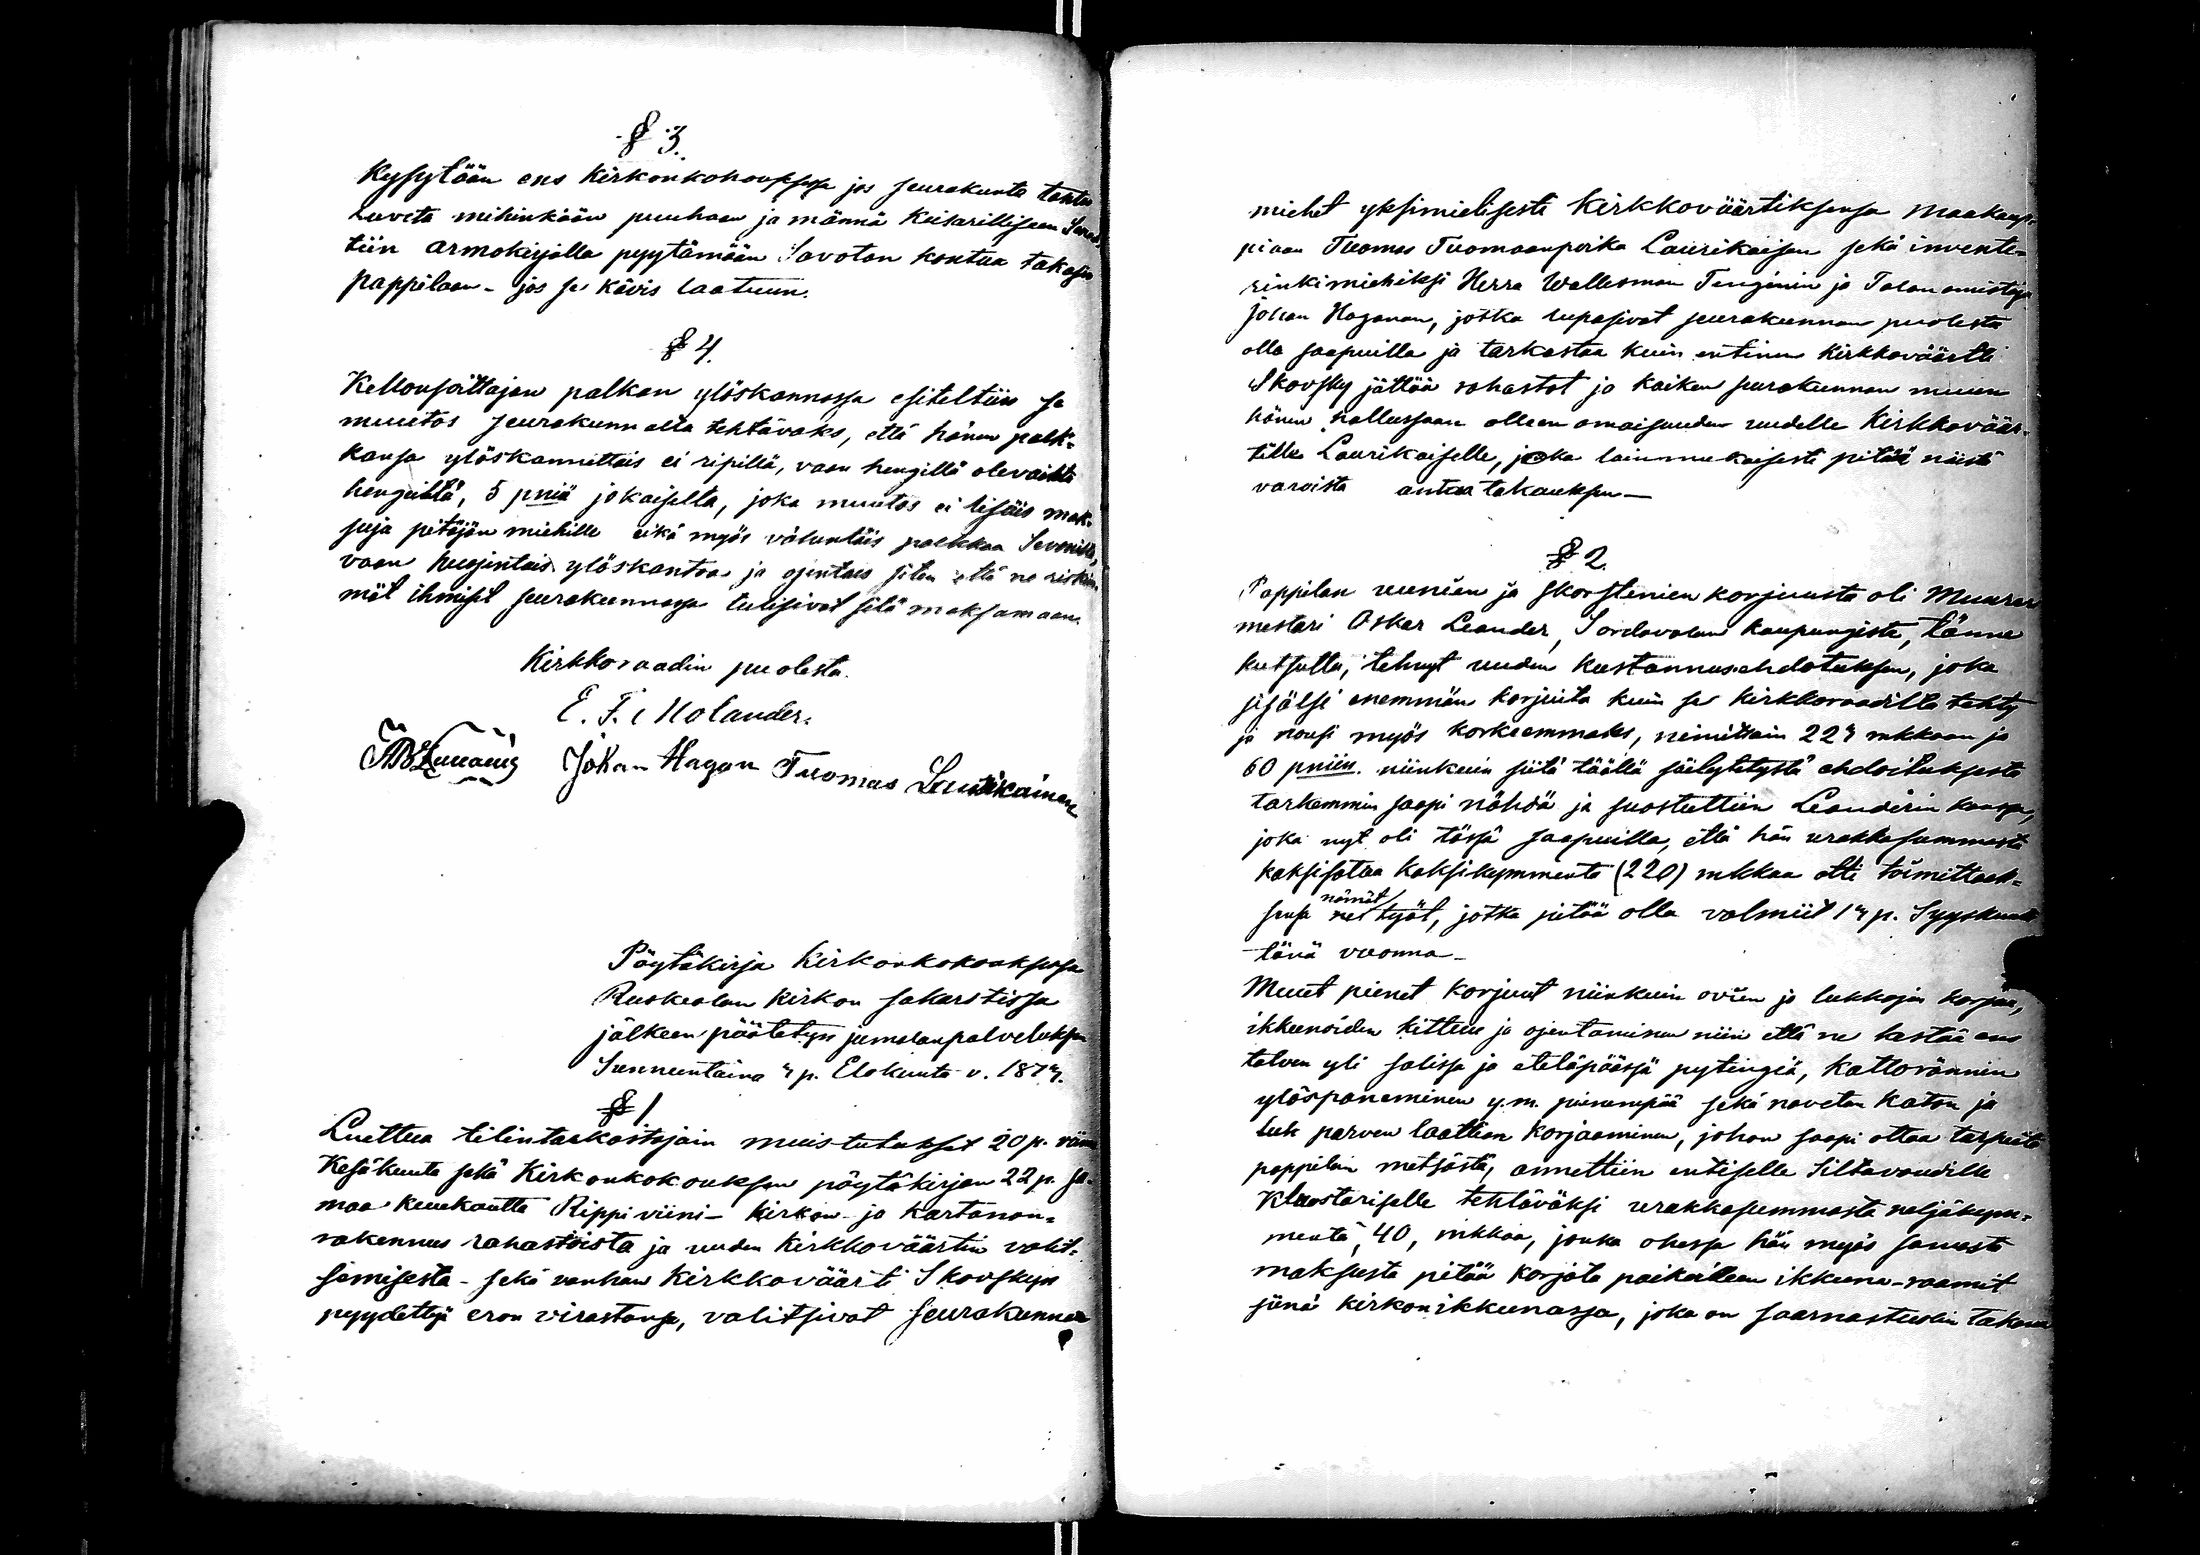 § 3.
Kysytään ens Kirkonkokouksessa jos seurakunta tahtoo
luveta mihinkään puuhaan ja männä Keisarillisseen Senaa
tiin armokirjalla pyytämään Savotan kontua takasin
pappilaan – jos se kävis laatuun.
§ 4.
Kellonsoittajan palkan ylöskannossa esiteltiin se
muutos seurakunnalta tehtäväks, että hänen palk-
kansa ylöskannettais ei ripillä, vaan hengillä olevailta
hengeiltä, 5 pniä jokaiselta, joka muutos ei lisäis mak-
suja pitäjän miehille eikä myös vähentäis palkkaa
vaan huojentais ylöskantoa ja ojentais siten että ne
mät ihmiset seurakunnassa tulisivat sitä maksamaan.
Kirkkoraadin puolesta.
E. F. Molander.
Johan Hagan Tuomas Laurikainen
Pöytäkirja Kirkonkokouksessa
Ruskealan Kirkon sakaristissa
jälkeen päätetyn jumalanpalveluksen
Sunnuntaina 5 p. Elokuuta v. 1875.
§ 1
Luettua tilintarkastajain muistutukset 20 p. viime
Kesäkuuta sekä Kirkonkokouksen pöytäkirjan 22 p. sa-
maa kuukautta Rippiviini- kirkon- ja kartanon-
rakennus rahastoista ja uuden Kirkkoväärtin valit-
semisesta – sekä vanhan Kirkkoväärti Skovskyn
pyydettyä eron virastansa, valitsivat seurakunnan
miehet yksimielisesti Kirkkoväärtiksensa Maakaup-
piaan Tuomas Tuomaanpoika Laurikaisen sekä invente-
rinkimiehiksi Herra Wallesman Tenginin ja Talonomistaja
Johan Haganan, jotka lupasivat seurakunnan puolesta
olla saapuilla ja tarkastaa kuin entinen Kirkkoväärti
Skovsky jättää rahastot ja kaiken seurakunnan muun
hänen hallussaan olleen omaisuuden uudelle Kirkkoväär-
tille Laurikaiselle, joka lainmukaisesti pitää niistä
varoista antaa takauksen –
§ 2.
Pappilan uunien ja skorstenien korjuusta oli Muurar
mestari Oskar Leander, Sordavalan kaupungista, tänne
kutsuttu, tehnyt uuden kustannusehdotuksen, joka
sisälsi enemmän korjuita kuin se kirkkoraadilta tehty
ja nousi myös korkeammaks, nimittäin 225 mkkaan ja
60 pniin. niinkuin siitä täällä säilytetystä ehdoituksesta
tarkemmin saapi nähdä ja suostuttiin Leanderin kanssa,
joka nyt oli tässä saapuilla, että hän urakkasummasta
kaksisataa kaksikymmentä (220) mkkaa otti toimittaak-
sensa nämät työt, jotka pitää olla valmiit 15 p. Syyskuuta
tänä vuonna –
Muut pienet korjuut niinkuin ovien ja lukkojen korjuu,
ikkunoiden kittuu ja ojentaminen niin että ne kestää ens
talven yli salissa ja eteläpäässä pytingiä, kattorännin
ylöspaneminen y.m. pienempää sekä navetan katon ja
luk parven laattian korjaaminen, johon saapi ottaa tarpeita
pappilan metsästä, annettiin entiselle Siltavoudille
Kloostariselle tehtäväksi urakkasummasta neljäkym-
mentä, 40, mkkaa, jonka ohessa hän myös samasta
maksusta pitää korjata paikoilleen ikkuna-raamit
siinä kirkonikkunassa, joka on saarnastuolin takana